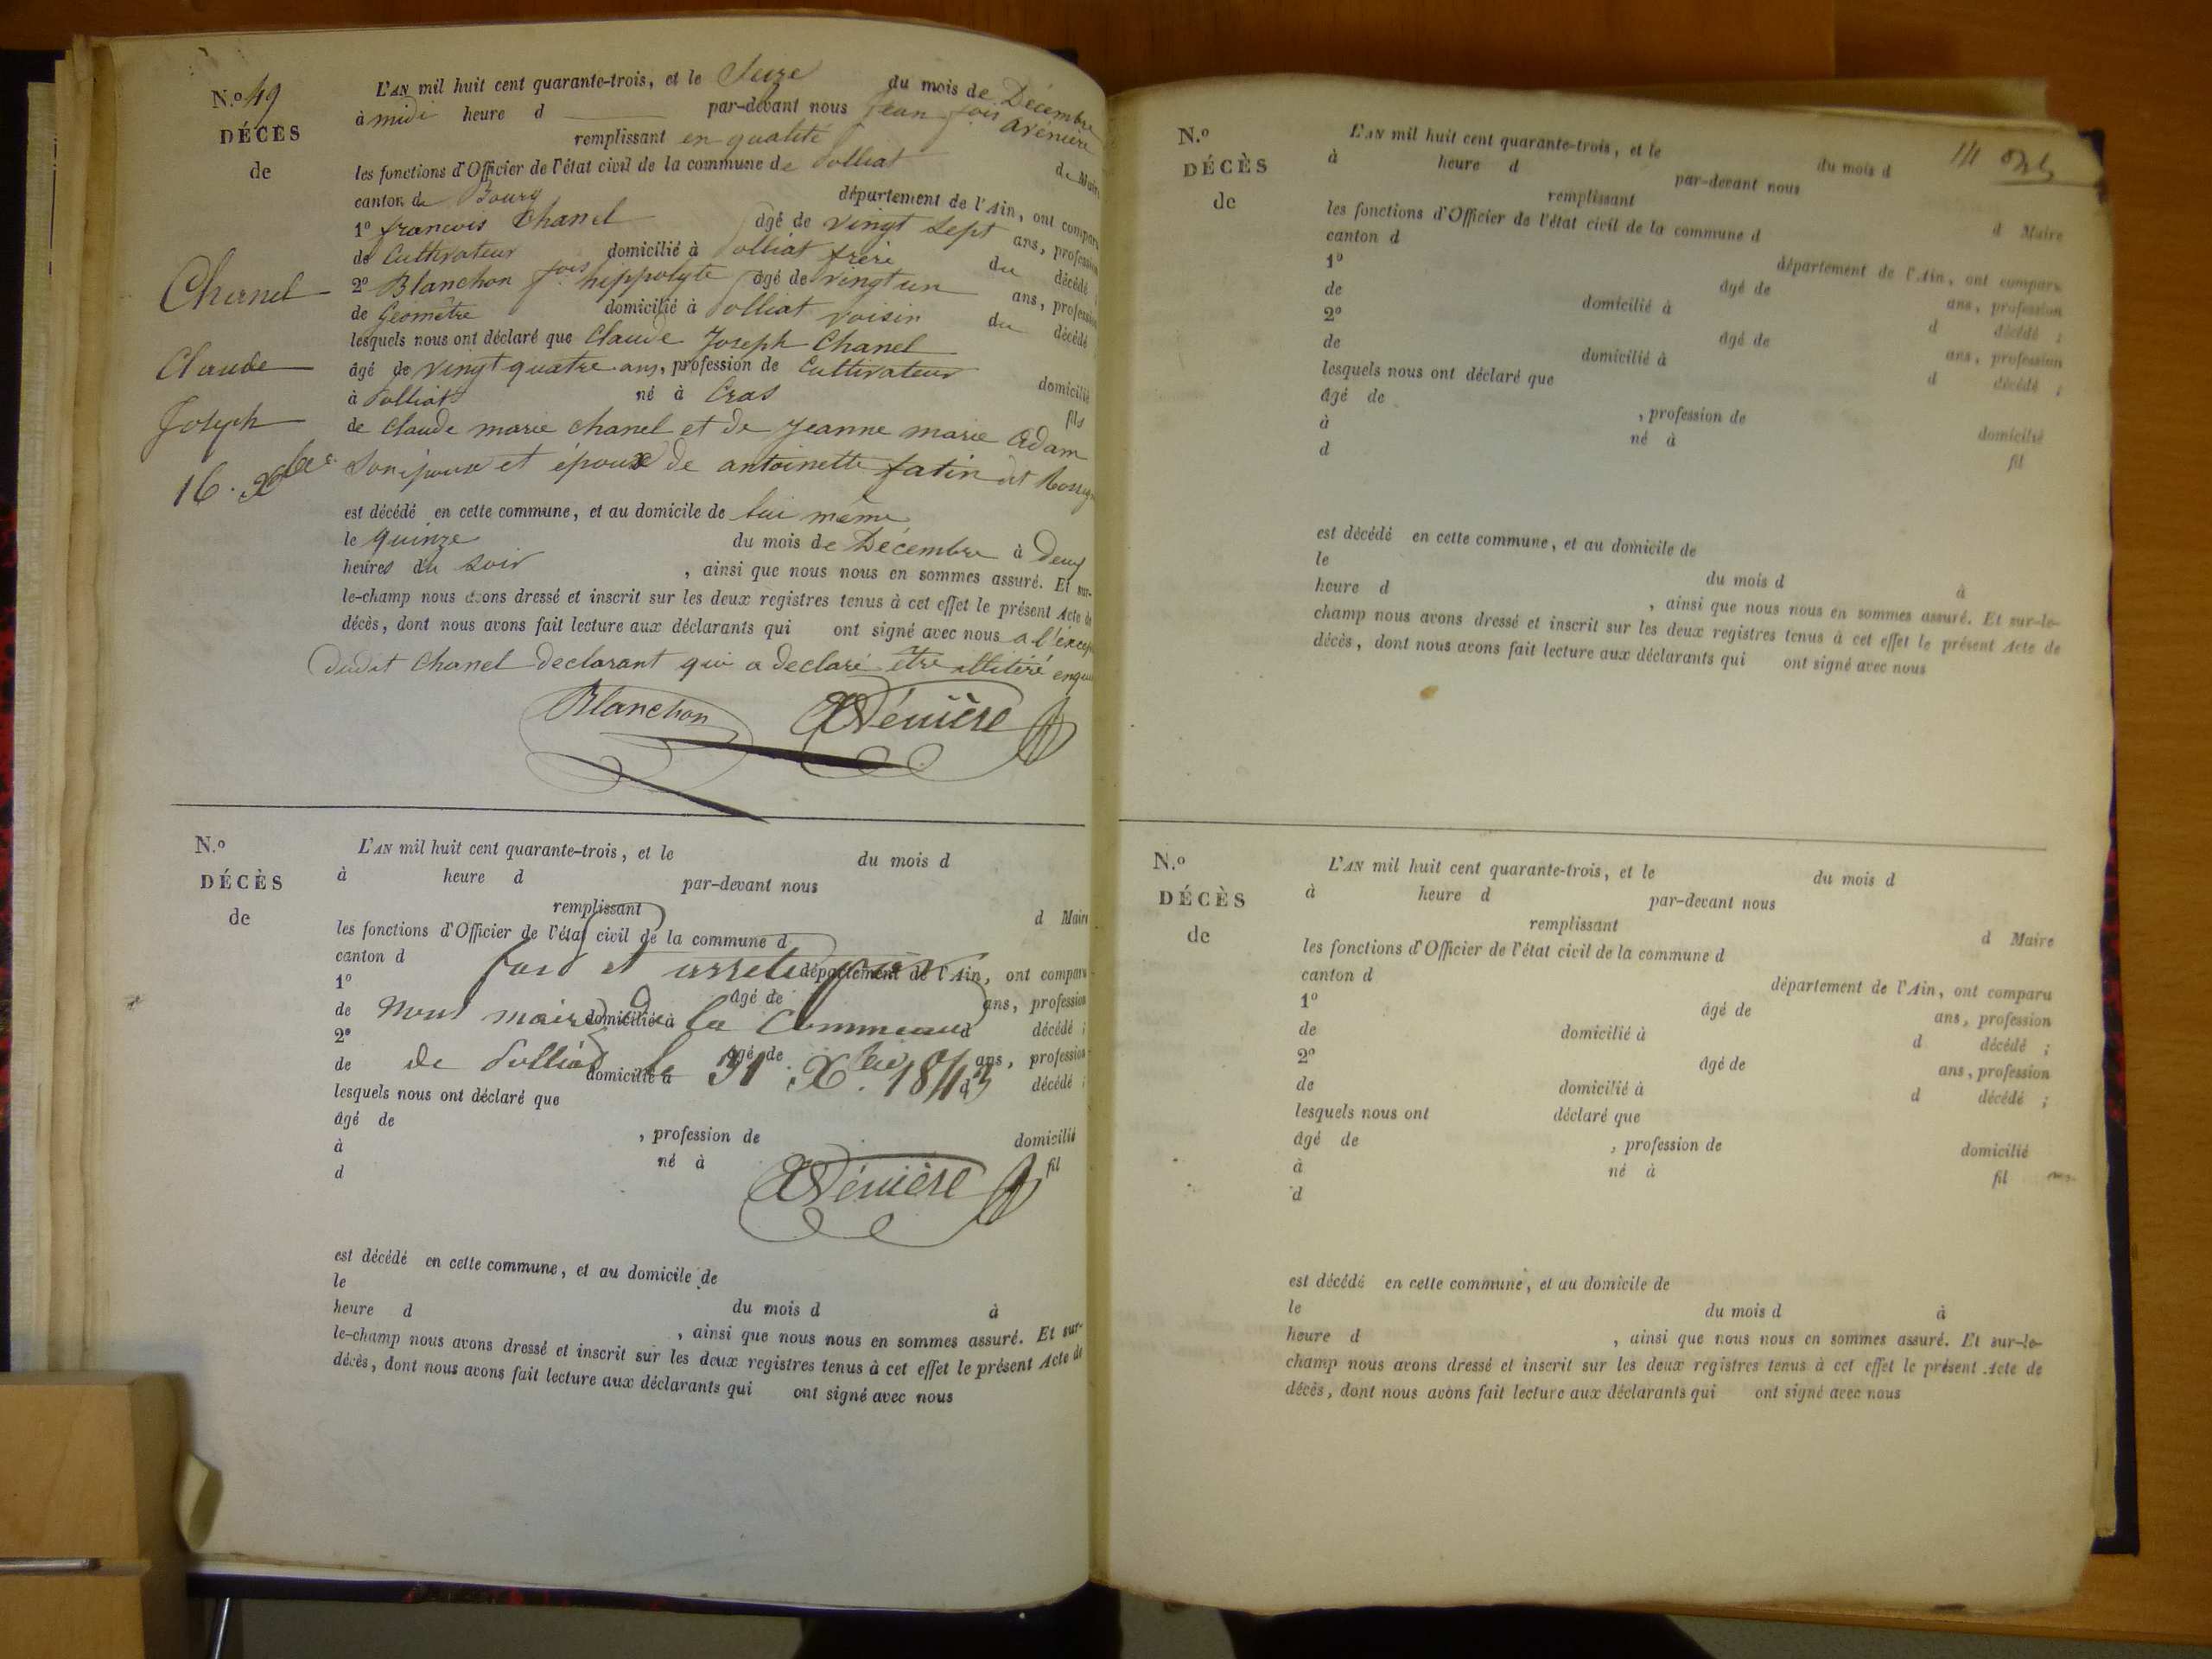 N.º 49
DÉCÈS
de
Chanel
Claude
Joseph
16. Xbre
L'AN mil huit cent quarante-trois, et le Seize du mois de Décembre
à midi heure d par-devant nous Jean fois
remplissant en qualité de Maire
les fonctions d'Officier de l'état civil de la commune de Polliat
canton de Bourg département de l'Ain, ont comparu
1º francois Chanel âgé de vingt sept ans, profession
de Cultivateur domicilié à Polliat frère du décédé ;
2º Blanchon fois hippolyte âgé de vingt un ans, profession
de Géomètre domicilié à Polliat voisin du décédé
lesquels nous ont déclaré que Claude Joseph Chanel
âgé de vingt quatre ans, profession de Cultivateur domicilié
à Polliat né à Cras fils
de Claude marie chanel et de Jeanne marie Adam
et époux de antoinette fatin dit
est décédé en cette commune, et au domicile de lui même
le quinze du mois de Décembre à Deux
heures du soir , ainsi que nous nous en sommes assuré. Et sur-
le-champ nous avons dressé et inscrit sur les deux registres tenus à cet effet le présent Acte de
décès, dont nous avons fait lecture aux déclarants qui ont signé avec nous a l'
dudit Chanel declarant qui a declaré être illitéré
Blanchon
N.º
DÉCÈS
de
L'AN mil huit cent quarante-trois, et le du mois d
à heure d par-devant nous
remplissant d Maire
les fonctions d'Officier de l'état civil de la commune d
canton d département de l'Ain, ont comparu
1º âgé de ans, profession
de domicilié à d décédé ;
2º âgé de ans, profession
de domicilié à d décédé ;
et par
Nous maire de la Commune
de Polliat le 31. Xbre 1843
lesquels nous ont déclaré que
âgé de , profession de domicilié
à né à fil
d
est décédé en cette commune, et au domicile de
le du mois d à
heure d , ainsi que nous nous en sommes assuré. Et sur-
le-champ nous avons dressé et inscrit sur les deux registres tenus à cet effet le présent Acte de
décès, dont nous avons fait lecture aux déclarants qui ont signé avec nous
N.º
DÉCÈS
de
L'AN mil huit cent quarante-trois, et le du mois d
à heure d par-devant nous
remplissant d Maire
les fonctions d'Officier de l'état civil de la commune d
canton d département de l'Ain, ont comparu
1º âgé de ans, profession
de domicilié à d décédé ;
2º âgé de ans, profession
de domicilié à d décédé ;
lesquels nous ont déclaré que
âgé de , profession de domicilié
à né à fil
d
est décédé en cette commune, et au domicile de
le du mois d à
heure d , ainsi que nous nous en sommes assuré. Et sur-le-
champ nous avons dressé et inscrit sur les deux registres tenus à cet effet le présent Acte de
décès, dont nous avons fait lecture aux déclarants qui ont signé avec nous
N.º
DÉCÈS
de
L'AN mil huit cent quarante-trois, et le du mois d
à heure d par-devant nous
remplissant d Maire
les fonctions d'Officier de l'état civil de la commune d
canton d département de l'Ain, ont comparu
1º âgé de ans, profession
de domicilié à d décédé ;
2º âgé de ans, profession
de domicilié à d décédé ;
lesquels nous ont déclaré que
âgé de , profession de domicilié
à né à fil
d
est décédé en cette commune, et au domicile de
le du mois d à
heure d , ainsi que nous nous en sommes assuré. Et sur-le-
champ nous avons dressé et inscrit sur les deux registres tenus à cet effet le présent Acte de
décès, dont nous avons fait lecture aux déclarants qui ont signé avec nous